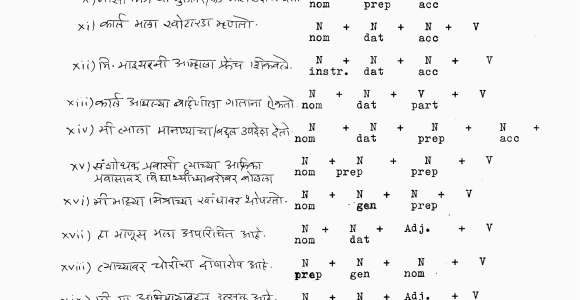 nom prep acc
xi) कार्ल मला खोटारडा म्हणतो. N + N + N + V
nom dat acc
xii) मि. मायरनी आम्हाला फ्रेंच शिकवले. N + N + N + V
instr. dat acc
xiii) कार्ल आपल्या बहिणीला गाताना ऐकतो. N + N + V + V
nom dat part
xiv) मी त्याला मानण्याचा/बद्दल उपदेश देतो. N + N + N + N +
nom dat prep acc
xv) संशोधक प्रवासी त्याच्या आफ्रिका N + N + N + V
प्रवासावर विद्यार्थ्यांबरोबर बोलला nom prep prep
xvi) मी माझ्या मित्राच्या खांद्यावर थोपटतो. N + N + N + V
nom gen prep
xvii) हा माणूस मला अपरिचित आहे. N + N + Adj. + V
nom dat
xviii) त्याच्यावर चोरीचा दोषारोप आहे. N + N + N + V
prep gen nom
N + N + Adj. + V